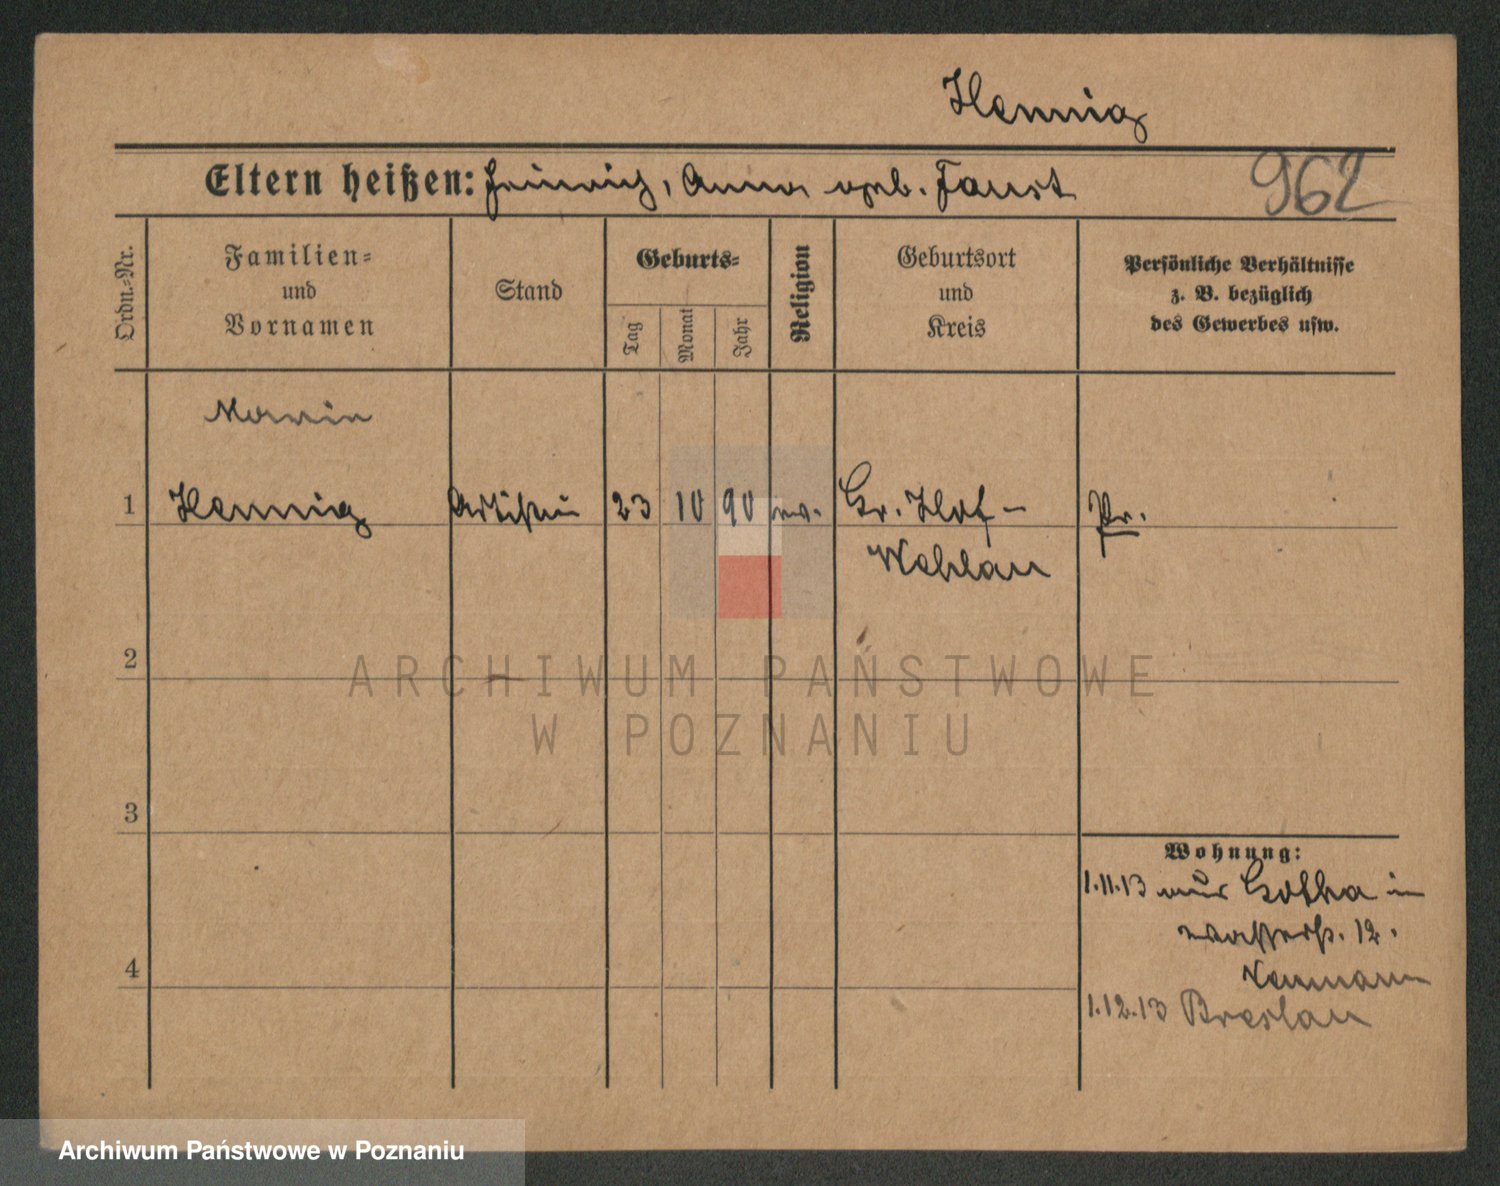 Hennig
Eltern heißen: Heinrich, Anna geb. Faust
962
Ordn.-Nr.
Familien-
und
Vornamen
Stand
Geburts-
Tag
Monat
Jahr
Religion
Geburtsort
und
Kreis
Persönliche Verhältnisse
z. B. bezüglich
des Gewerbes usw.
1
Hennig
Artistin
23
10
90
ev.
Gr. Hof-
Wehlau
Pr.
2
ARCHIWUM PAŃSTWOWE
W POZNANIU
3
Wohnung:
1.11.13 aus Gotha in
Wasserst. 12.
Neumann
4
1.12.13 Breslau
Archiwum Państwowe w Poznaniu